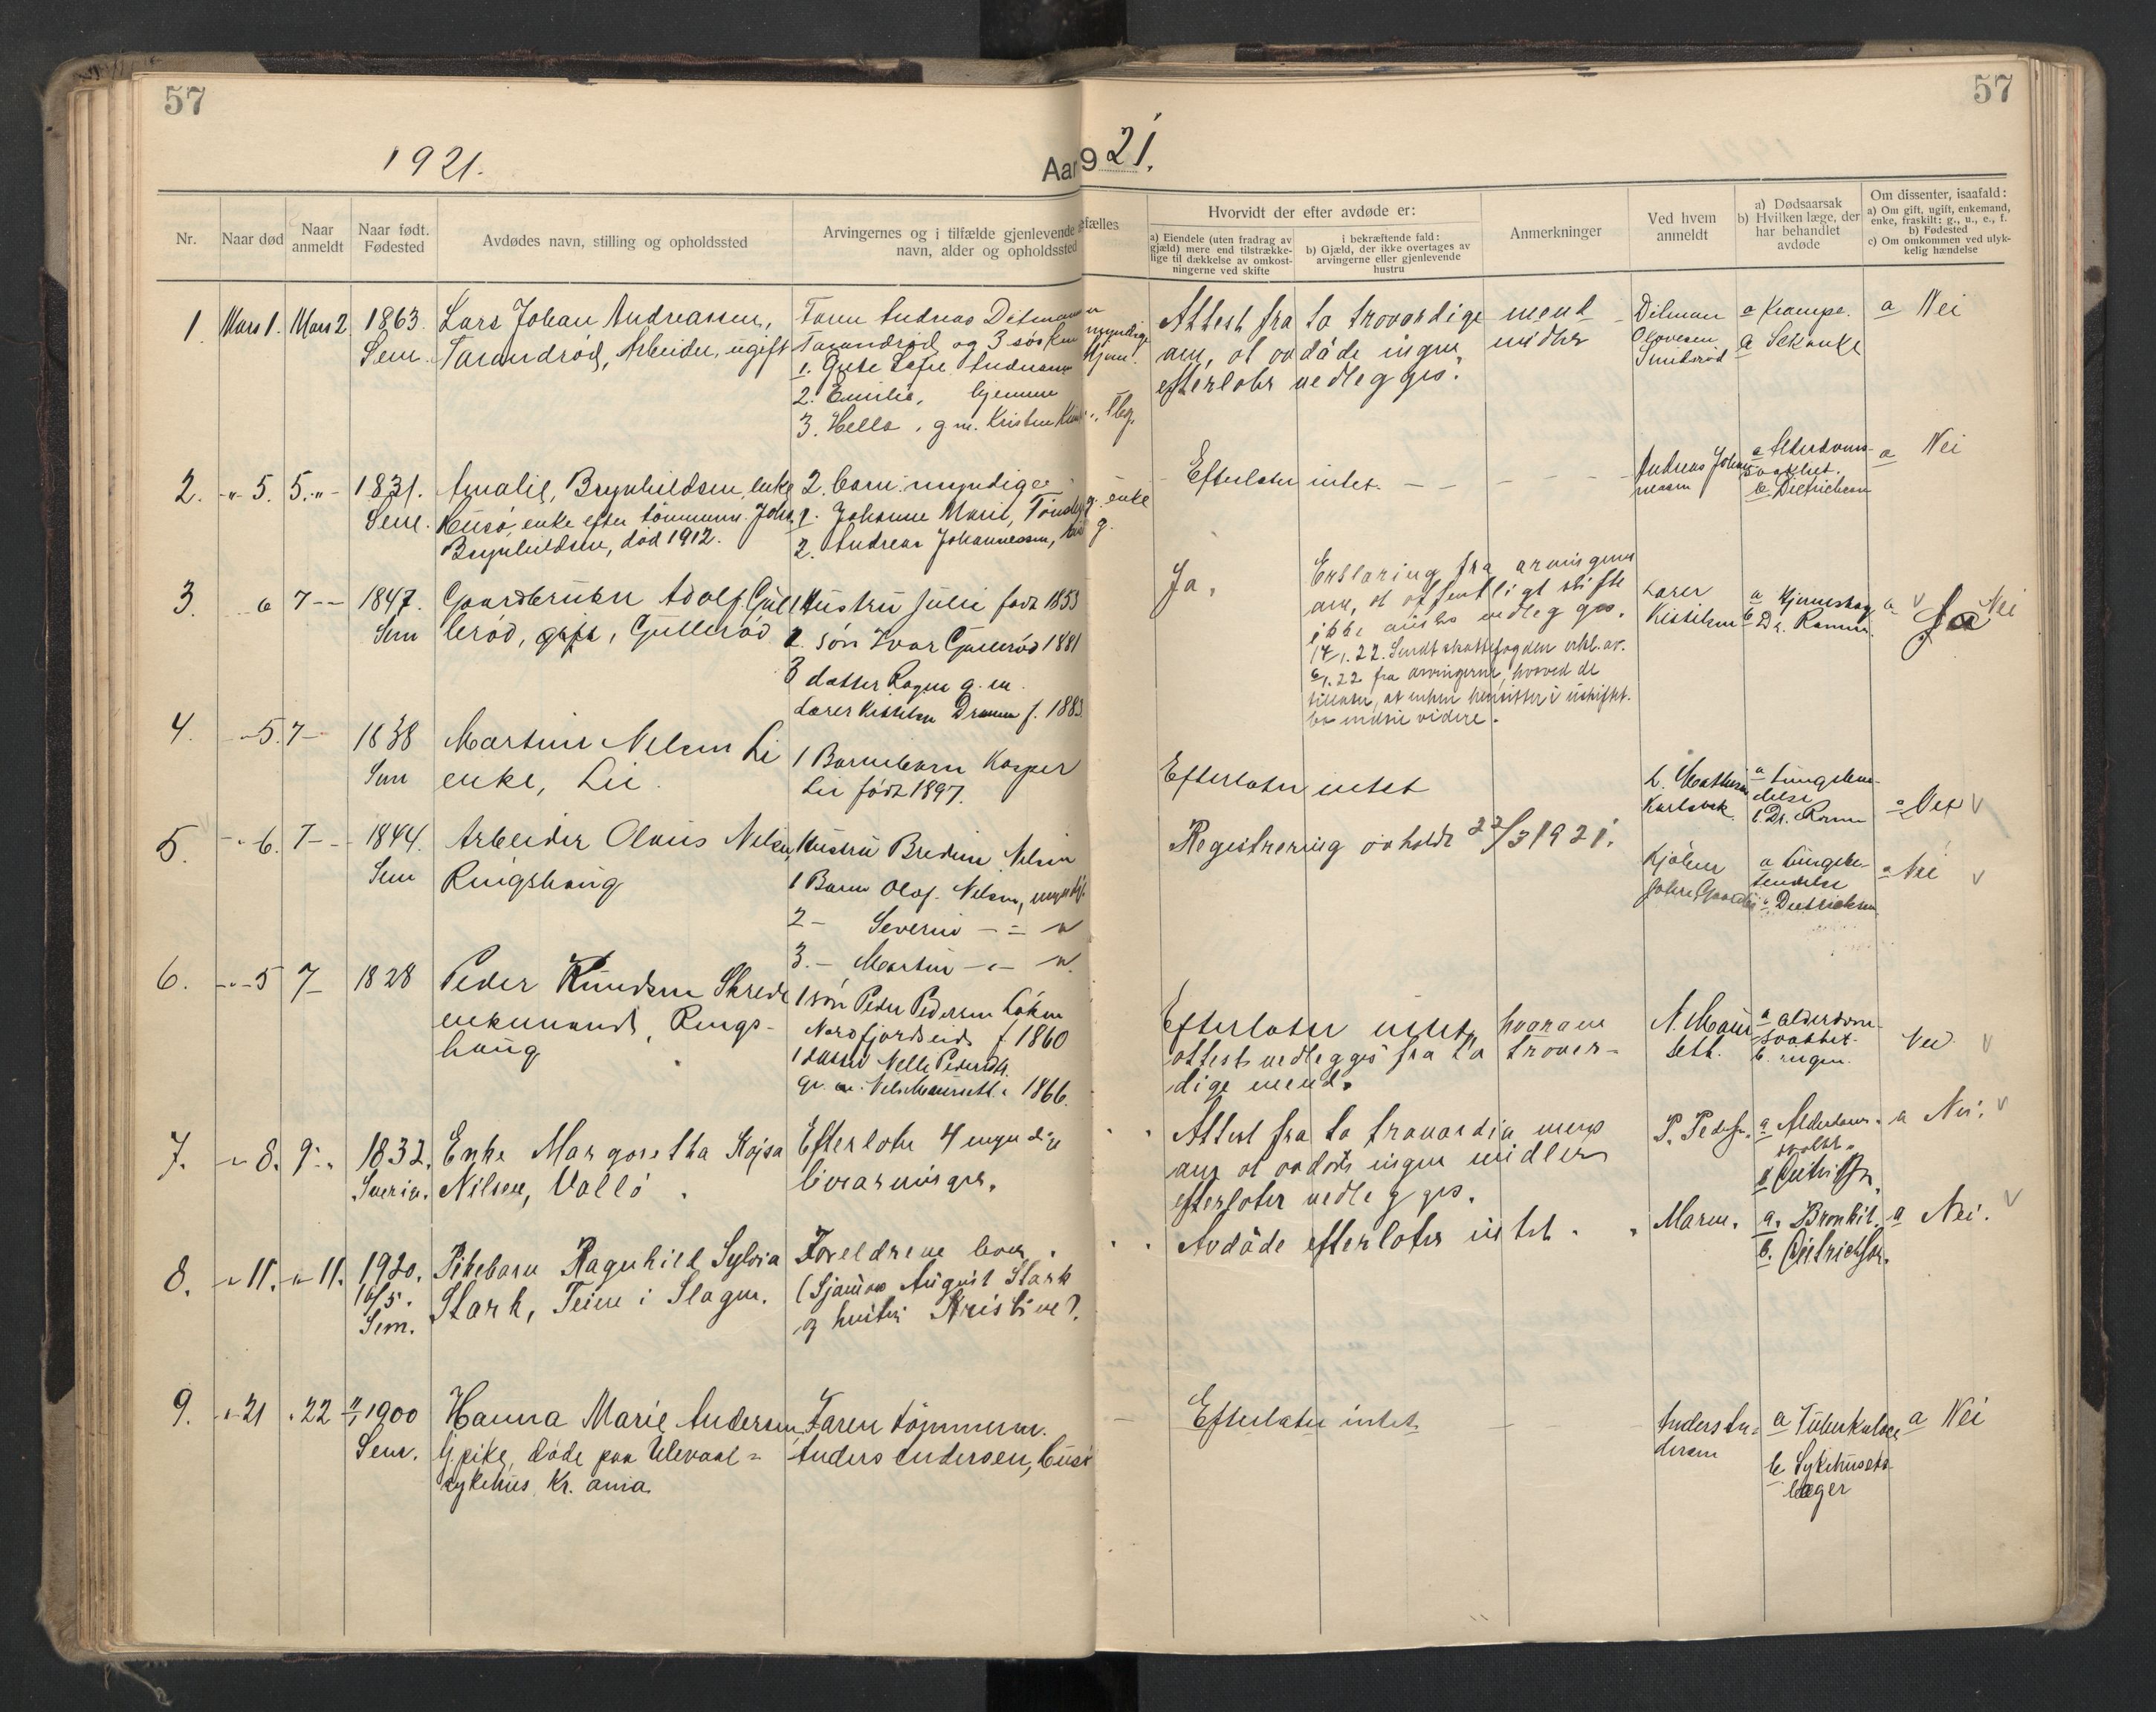 57
57
1921.
Aar 1921.
Nr.
Naar død
Naar anmeldt
Naar født. Fødested
Avdødes navn, stilling og opholdssted
Arvingernes og i tilfælde gjenlevende
navn, alder og opholdssted
efælles
Hvorvidt der efter avdøde er:
a) Eiendele (uten fradrag av gjæld) mere end tilstrækkelige til dækkelse av omkostningerne ved skifte
i bekræftende fald:
b) Gjæld, der ikke overtages av arvingerne eller gjenlevende hustru
Anmerkninger
Ved hvem anmeldt
a) Dødsaarsak
b) Hvilken læge, der har behandlet avdøde
Om dissenter, isaafald:
a) Om gift, ugift, enkemand, enke, fraskilt: g., u., e., f.
b) Fødested
c) Om omkommen ved ulykkelig hændelse
1. Mars 1. Mars 2 1863. Lars Johan Andreassen,
Sem. Tarandrød, Arbeider, ugift
Faren Andreas
Tarandrød og 3 søsken myndige
1. Sofie hjem.
2. Emilie, hjemme
3. Hella, g.m. Kristen Tbg.
Attest fra to troværdige mænd
om, at avdøde ingen midler
efterlater vedlegges.
Ditman
Olavesen
a Krampe.
a Nei
2. -"- 5. 5.-"- 1831. Amalie, Brynhildsen, enke
Sem. Husø, enke efter tømmerm. Johs.
Brynhildsen, død 1912.
2 barn myndige
1. Johanne Marie, Tønsbg. enke
2. Andreas Johannessen,
Efterlater intet.
Andreas Johannessen
a Alderdomssvakhet.
b Dietrichson
a Nei
3. 6 7 - - 1847. Gaardbruker Adolf Gullerød, gift, Gullerød
Sem
1 Hustru Julie født 1853
2 søn Ivar Gullerød 1881
3 datter Ragna g. m.
Lærer Kittilsen f. 1883
Ja,
Erklæring fra arvingerne
om, at offentligt skifte
ikke vedlegges.
17/1.22. Sendt skattefogden erkl. av
6/1.22 fra arvingerne, hvorved de
tillater, at enken hensitter i uskiftet
bo indtil videre.
Lærer
Kittilsen
a Hjerneslag
b Dr. Ramm.
a Nei
4. -"- 5. 7 - 1838 Martine Nilsen Li
Sem enke, Lie.
1 Barnebarn Kasper
Lie født 1897.
Efterlater intet
L. Mathisen
a Lungebetændelse
b. Dr. Ramm
a Nei
5. -"- 6. 7 - - 1844. Arbeider Olaus Nilsen,
Sem Ringshaug
Hustru Bredine Nilsen
1 Barn Olaf Nilsen, myndig
2 - Severin - = "
3. - Martin - " - ".
Registrering avholdt 22/3 1921.
a Lungebetændelse
b Dietrichson
a Nei
6. -"- 5 7 - 1828 Peder Knudsen Skrede
enkemand, Ringshaug
1 søn Peder Pedersen
Nordfjordeid f 1860
1 datter Nelle Pedersdt.
gi. m. Nils Maurseth. " 1866.
Efterlater intet, hvorom
attest vedlegges fra to troværdige mænd.
N. Maurseth.
a alderdomssvakhet.
b. ingen.
Nei
7. -"- 8. 9 -"- 1832. Enke Margaretha Kajsa
Sverige. Nilsen, Vallø.
Efterlater 4 myndige
livsarvinger.
Attest fra to troværdige mænd
om at avdøde ingen midler
efterlater vedlegges.
P. Peders.
a Alderdomssvakh.
b Dietrichson.
a Nei.
8. -"- 11. -"- 11. 1920. Pikebarn Ragnhild Sylvia
16/5. Stark, Teine i Slagen.
Sem.
Foreldrene lever.
(Sjømand August Stark
og hustru Kristine).
Avdøde efterlater intet.
Maren.
a. Bronkit.
b. Dietrichson.
a Nei.
9. -"- 21 " 22 1900 Hanna Marie Andersen,
Sem. tj. pike, døde paa Ulevaal =
sykehus, Kr.ania.
Faren tømmerm.
Anders Andersen, Husø
Efterlater intet
Anders Andersen
a Tuberkulose
b Sykehusets
læger
a Nei